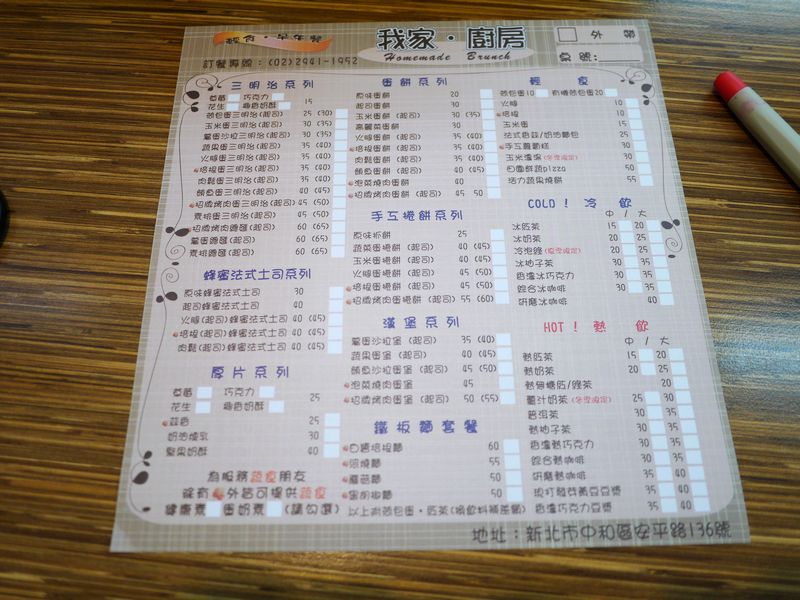 輕食・早午餐
我家・廚房
Homemade Brunch
外帶
桌號:
訂餐專線:(02)2941-1952
三明治系列
草莓 巧克力
花生 椰香奶酥 15
荷包蛋三明治(起司) 25 (30)
玉米蛋三明治(起司) 30 (35)
薯蛋沙拉三明治(起司) 30 (35)
蔬果蛋三明治(起司) 35 (40)
火腿蛋三明治(起司) 35 (40)
培根蛋三明治(起司) 35 (40)
肉鬆蛋三明治(起司) 35 (40)
鮪魚蛋三明治(起司) 40 (45)
招牌烤肉蛋三明治(起司) 45 (50)
素排蛋三明治(起司) 45 (50)
招牌烤肉總匯(起司) 60 (65)
薯蛋總匯(起司) 60 (65)
素排總匯(起司) 60 (65)
蜂蜜法式土司系列
原味蜂蜜法式土司 30
起司蜂蜜法式土司 40
火腿(起司)蜂蜜法式土司 40 (45)
培根(起司)蜂蜜法式土司 40 (45)
肉鬆(起司)蜂蜜法式土司 40 (45)
厚片系列
草莓 巧克力
花生 椰香奶酥 25
蒜香 25
奶油煉乳 30
堅果奶酥 40
為服務蔬食朋友
除有 外皆可提供蔬食
健康素 蛋奶素 (請勾選)
蛋餅系列
原味蛋餅 20
起司蛋餅 30
玉米蛋餅(起司) 30 (35)
高麗菜蛋餅 30
火腿蛋餅(起司) 35 (40)
培根蛋餅(起司) 35 (40)
肉鬆蛋餅(起司) 35 (40)
鮪魚蛋餅(起司) 40 (45)
泡菜燒肉蛋餅 40
招牌烤肉蛋餅(起司) 45 50
手工捲餅系列
原味抓餅 25
蔬菜蛋捲餅(起司) 40 (45)
玉米蛋捲餅(起司) 40 (45)
火腿蛋捲餅(起司) 45 (50)
培根蛋捲餅(起司) 45 (50)
招牌烤肉蛋捲餅(起司) 55 (60)
漢堡系列
薯蛋沙拉堡(起司) 35 (40)
蔬果蛋堡(起司) 40 (45)
鮪魚沙拉蛋堡(起司) 45 (50)
泡菜燒肉蛋堡 45
招牌烤肉蛋堡(起司) 50 (55)
鐵板麵套餐
白醬培根麵 60
沙嗲麵 55
蘑菇麵 50
黑胡椒麵 50
以上附荷包蛋・紅茶(換飲料補差額)
輕食
荷包蛋10 有機荷包蛋20
火腿 10
培根 10
玉米蛋 15
法式香蒜/奶油麵包 25
手工蘿蔔糕 30
玉米濃湯(冬季限定) 30
田園鮮蔬pizza 50
活力蔬果燒餅 55
COLD! 冷飲
中 / 大
冰紅茶 15 20
冰奶茶 20 25
冷泡綠(夏季限定) 20 25
冰柚子茶 30 35
香濃冰巧克力 30 35
綜合冰咖啡 30 35
研磨冰咖啡 40
HOT! 熱飲
中 / 大
熱紅茶 15 20
熱奶茶 20 25
熱無糖紅/綠茶 20
薑汁奶茶(冬季限定) 25 30
普洱茶 25 30
熱柚子茶 30 35
香濃熱巧克力 30 35
綜合熱咖啡 30 35
研磨熱咖啡 35 40
現打養芽黃豆豆漿 35 40
香濃巧克力豆漿 35 40
地址:新北市中和區安平路136號